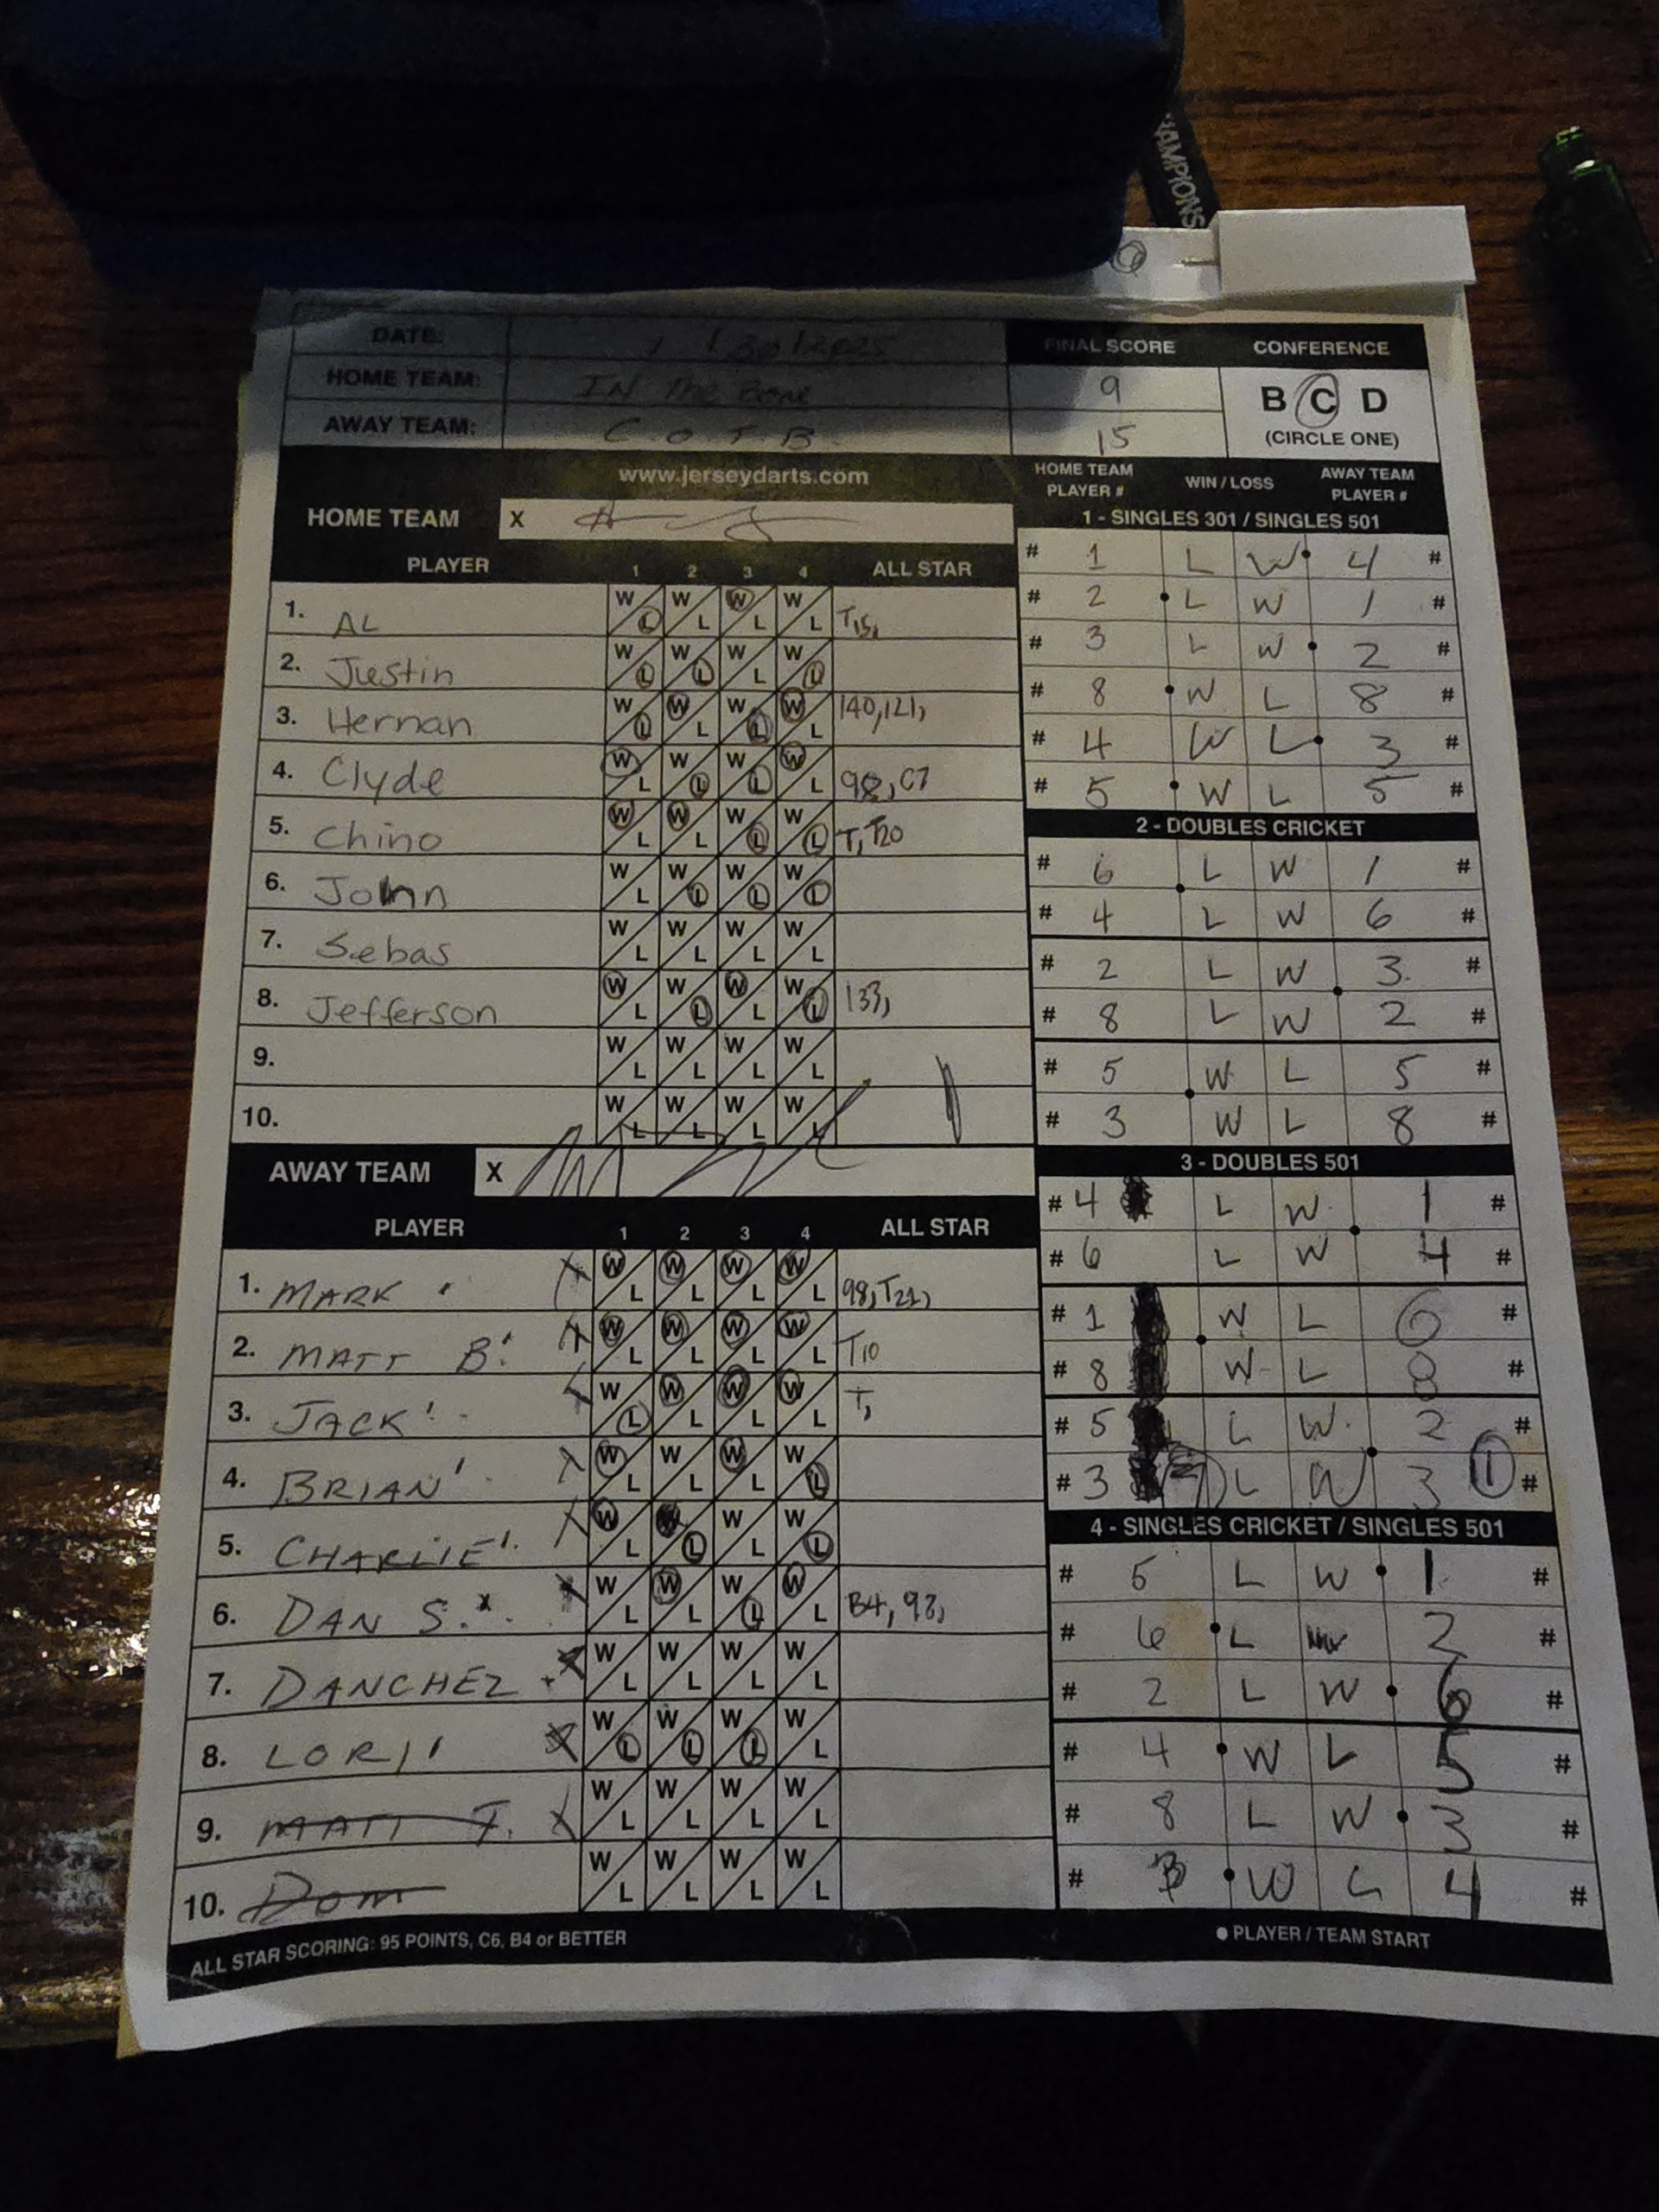 CHAMPIONS
DATE: 1/30/2025 FINAL SCORE CONFERENCE
HOME TEAM: IN The Bone 9 B C D
AWAY TEAM: C.O.T.B. 15 (CIRCLE ONE)
www.jerseydarts.com
HOME TEAM PLAYER # WIN / LOSS AWAY TEAM PLAYER #
HOME TEAM X
PLAYER 1 2 3 4 ALL STAR
1. AL W L W L W L W L
2. Justin W L W L W L W L
3. Hernan W L W L W L W L 140,121,
4. Clyde W L W L W L W L 98, C7
5. Chino W L W L W L W L T, T20
6. John W L W L W L W L
7. Sebas W L W L W L W L
8. Jefferson W L W L W L W L 133,
9. W L W L W L W L
10. W L W L W L W L
AWAY TEAM X
PLAYER 1 2 3 4 ALL STAR
1. MARK W L W L W L W L 98, T21,
2. MATT B. W L W L W L W L T10
3. JACK W L W L W L W L T,
4. BRIAN W L W L W L W L
5. CHARLIE W L L W L W L
6. DAN S. W L W L W L W L B4, 98,
7. DANCHEZ W L W L W L W L
8. LORI W L W L W L W L
9. MATT T. W L W L W L W L
10. Dom W L W L W L W L
ALL STAR SCORING: 95 POINTS, C6, B4 or BETTER
1 - SINGLES 301 / SINGLES 501
# 1 L W 4 #
# 2 L W 1 #
# 3 L W 2 #
# 8 W L 8 #
# 4 W L 3 #
# 5 W L 5 #
2 - DOUBLES CRICKET
# 6 L W 1 #
# 4 L W 6 #
# 2 L W 3 #
# 8 L W 2 #
# 5 W L 5 #
# 3 W L 8 #
3 - DOUBLES 501
# 4 L W 1 #
# 6 L W 4 #
# 1 W L 6 #
# 8 W L 8 #
# 5 L W 2 #
# 3 7 L W 3 11 #
4 - SINGLES CRICKET / SINGLES 501
# 5 L W 1 #
# 6 L W 2 #
# 2 L W 6 #
# 4 W L 5 #
# 8 L W 3 #
# W L 4 #
PLAYER / TEAM START